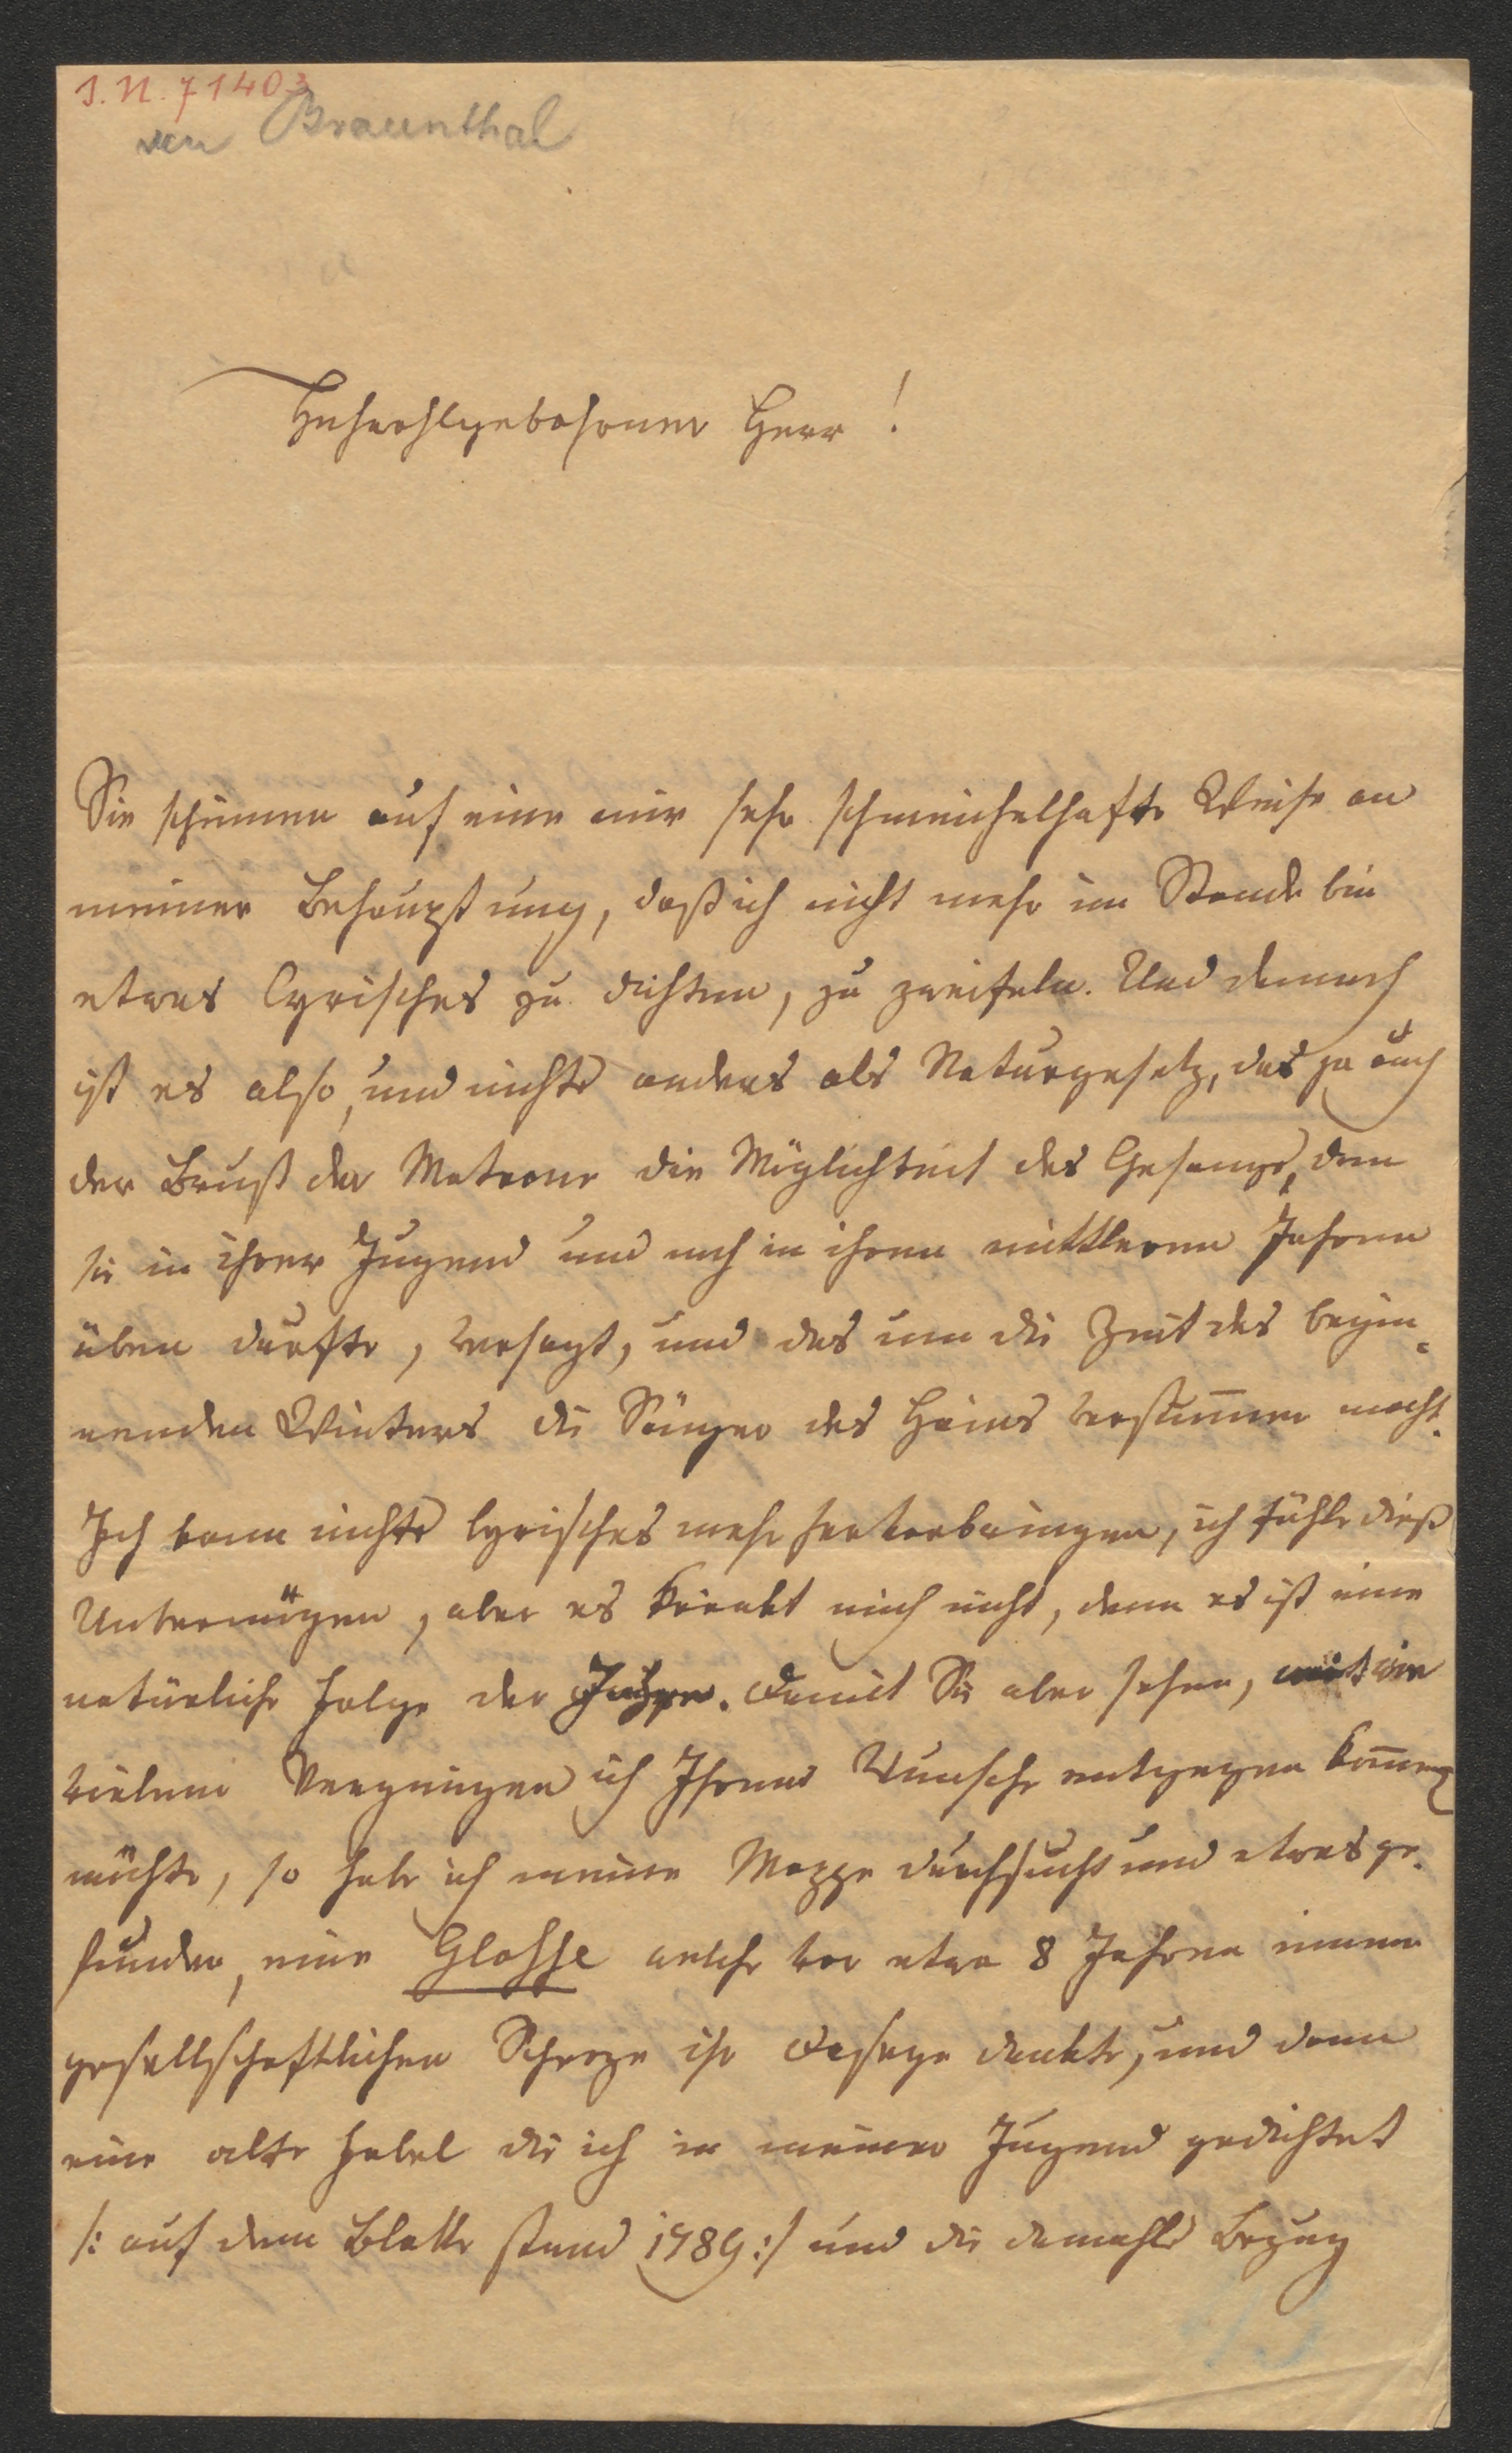 I.N. 71403
von Braunthal
Hochwohlgebohrner Herr!
Sie scheinen auf eine mir sehr schmeichelhafte Weise an
meiner Behauptung, daß ich nicht mehr im Stande bin
etwas lyrisches zu dichten, zu zweifeln. Und dennoch
ist es also, und nichts anders als Naturgesetz, das ja auch
der Brust der Matrone die Möglichkeit des Gesangs, den
sie in ihrer Jugend und noch in ihren mittleren Jahren
üben durfte, versagt, und das um die Zeit des begin-
nenden Winters die Sänger des Hains verstum̅en macht.
Ich kann nichts lyrisches mehr hervorbringen, ich fühle dieß
Unvermögen, aber es kränkt mich nicht, denn es ist eine
natürliche Folge der Jahre. Damit Sie aber sehen, mit wie
vielem Vergnügen ich Ihrem Wunsche entgegen kom̅en
möchte, so habe ich meine Mappe durchsucht und etwas ge-
funden, eine Glosse welche vor etwa 8 Jahren einem
gesellschaftlichen Scherze ihr Daseyn dankte, und dann
eine alte Fabel die ich in meiner Jugend gedichtet
/: auf dem Blatte stand 1789 :/ und die damahls Bezug